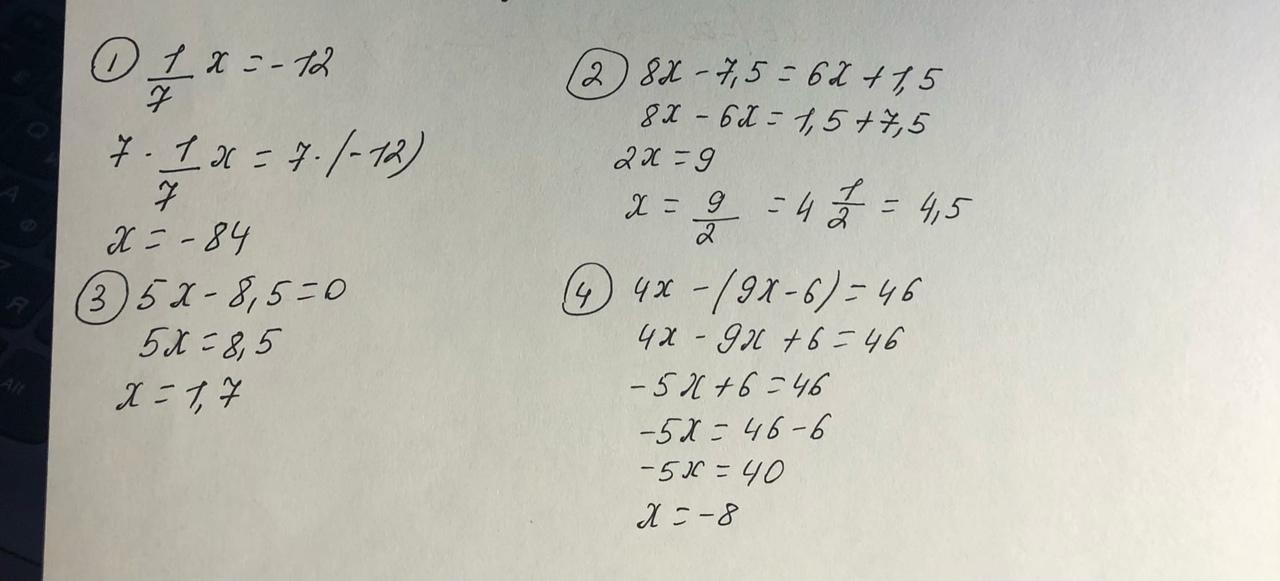 ① 1/7 x = -12
7 · 1/7 x = 7 · (-12)
x = -84
② 8x - 7,5 = 6x + 1,5
8x - 6x = 1,5 + 7,5
2x = 9
x = 9/2 = 4 1/2 = 4,5
③ 5x - 8,5 = 0
5x = 8,5
x = 1,7
④ 4x - (9x - 6) = 46
4x - 9x + 6 = 46
-5x + 6 = 46
-5x = 46 - 6
-5x = 40
x = -8